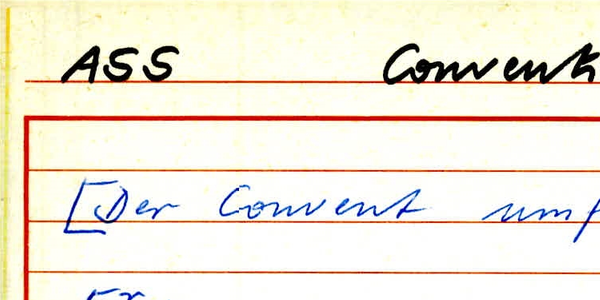 ASS Convent
[Der Convent